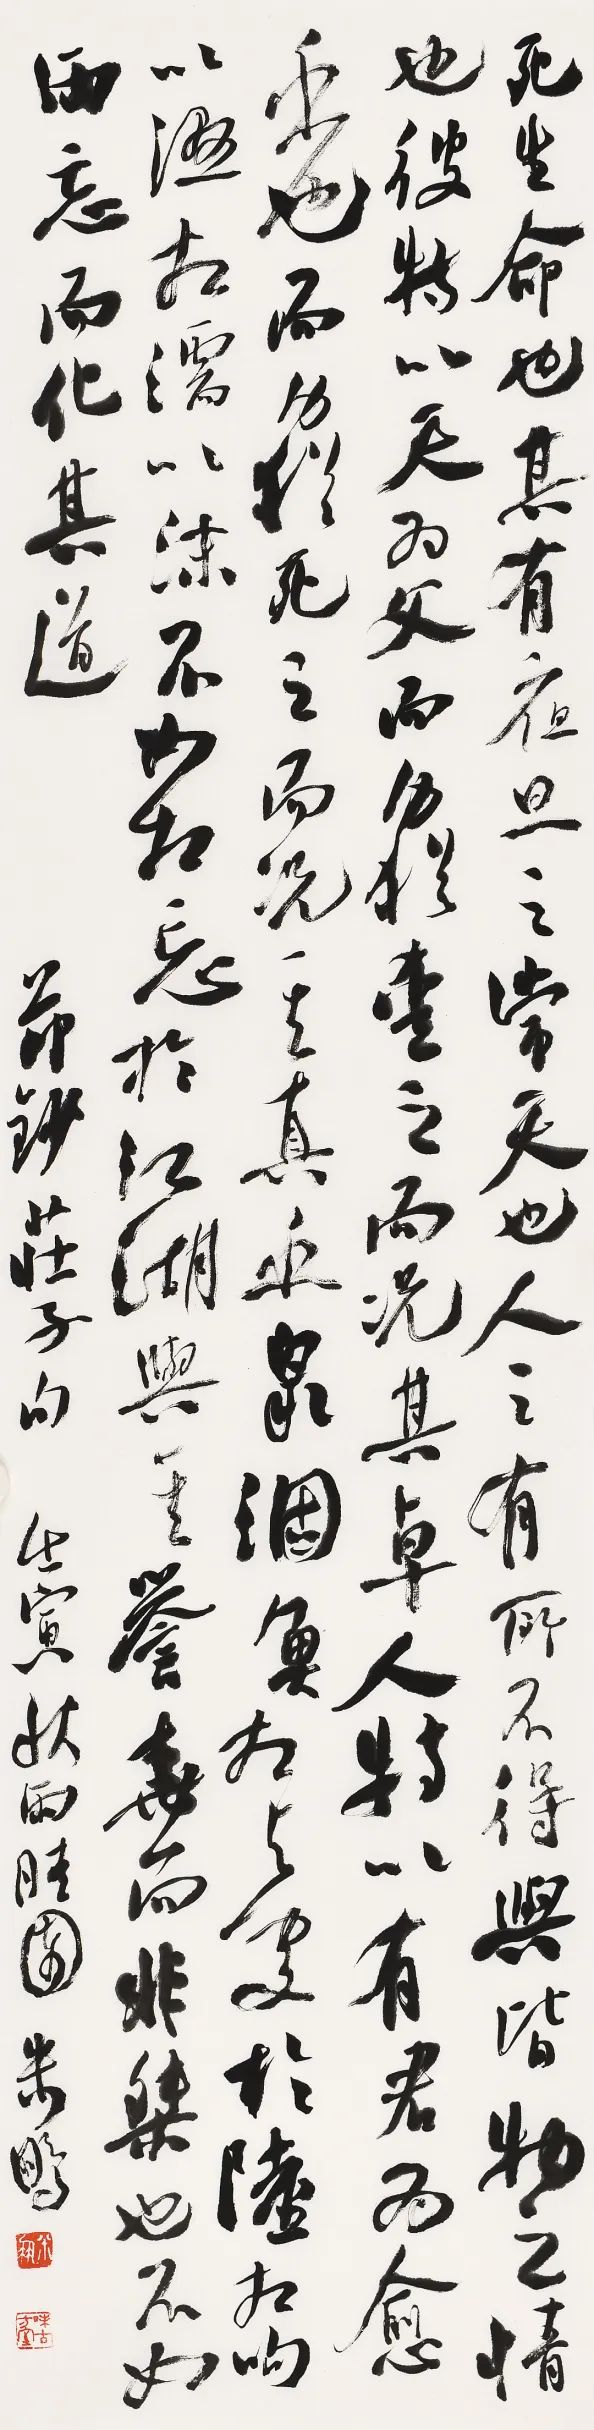 死生命也其有夜旦之常天也人之有所不得與皆物之情
也彼特以天为父而身猶愛之而况其卓人特以有君为愈
乎也而身猶死之而况其真乎泉涸魚相与處於陸相呴
以濕相濡以沫不如相忘於江湖與其譽堯而非桀也不如
两忘而化其道
節鈔莊子句 壬寅秋雨晴園 朱鵬